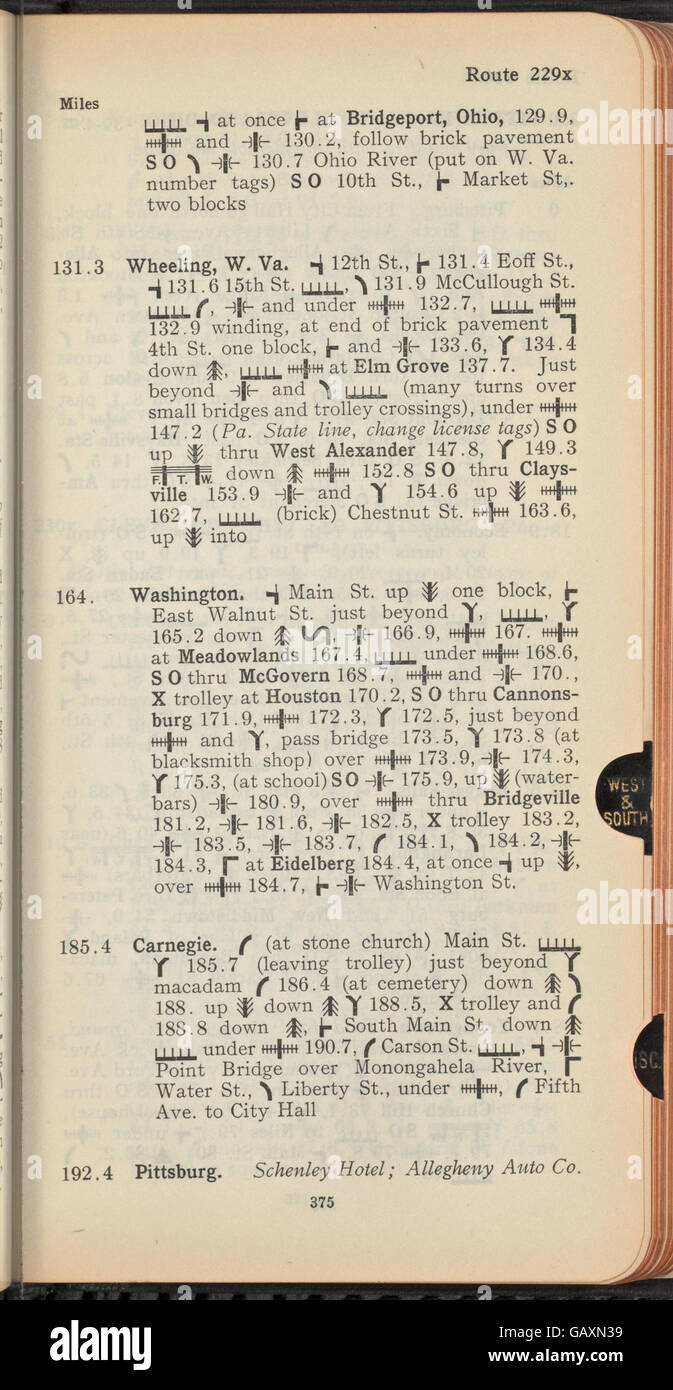 Route 229x
Miles
at once at Bridgeport, Ohio, 129.9,
and 130.2, follow brick pavement
S O 130.7 Ohio River (put on W. Va.
number tags) S O 10th St., Market St,.
two blocks
131.3 Wheeling, W. Va. 12th St., 131.4 Eoff St.,
131.6 15th St. , 131.9 McCullough St.
, and under 132.7,
132.9 winding, at end of brick pavement
4th St. one block, and 133.6, 134.4
down , at Elm Grove 137.7. Just
beyond and (many turns over
small bridges and trolley crossings), under
147.2 (Pa. State line, change license tags) S O
up thru West Alexander 147.8, 149.3
F. T. W. down 152.8 S O thru Clays-
ville 153.9 and 154.6 up
162.7, (brick) Chestnut St. 163.6,
up into
164. Washington. Main St. up one block,
East Walnut St. just beyond , ,
165.2 down , 166.9, 167.
at Meadowlands 167.4, under 168.6,
S O thru McGovern 168.7, and 170.,
X trolley at Houston 170.2, S O thru Cannons-
burg 171.9, 172.3, 172.5, just beyond
and , pass bridge 173.5, 173.8 (at
blacksmith shop) over 173.9, 174.3,
175.3, (at school) SO 175.9, up (water-
bars) 180.9, over thru Bridgeville
181.2, 181.6, 182.5, X trolley 183.2,
183.5, 183.7, 184.1, 184.2,
184.3, at Eidelberg 184.4, at once up ,
over 184.7, Washington St.
185.4 Carnegie. (at stone church) Main St.
185.7 (leaving trolley) just beyond
macadam 186.4 (at cemetery) down
188. up down 188.5, X trolley and
188.8 down , South Main St. down
under 190.7, Carson St. ,
Point Bridge over Monongahela River,
Water St., Liberty St., under , Fifth
Ave. to City Hall
192.4 Pittsburg. Schenley Hotel; Allegheny Auto Co.
375
WEST
&
SOUTH
ISC.
alamy
alamy
Image ID: GAXN39
www.alamy.com